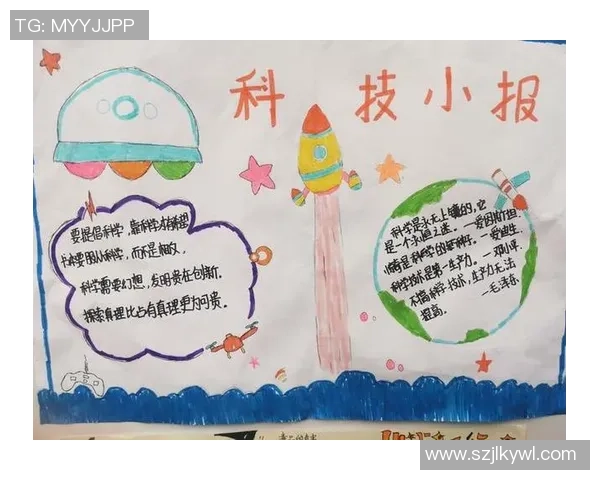 TG: MYYJJPP
科技小报
要提倡科学，靠科学才有希望
要服从科学，而不是相反。
科学需要幻想，发明贵在创新。
探索真理比占有真理更为可贵。
科学是永无止境的，它
是一个永恒之迷。一爱因斯坦.
科学的 一爱迪生.
科学技术是第一生产力。一邓小平
不搞科学技术，生产力无法
提高。 一毛泽东.
www.szjlkywl.com